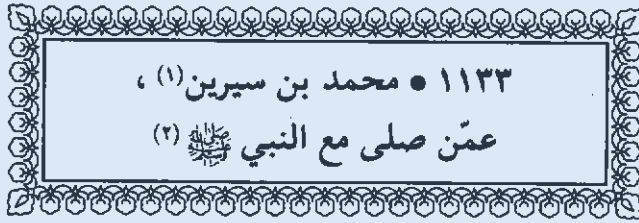 ١١٣٣ • محمد بن سيرين(١) ،
عمّن صلى مع النبي ﷺ (٢)